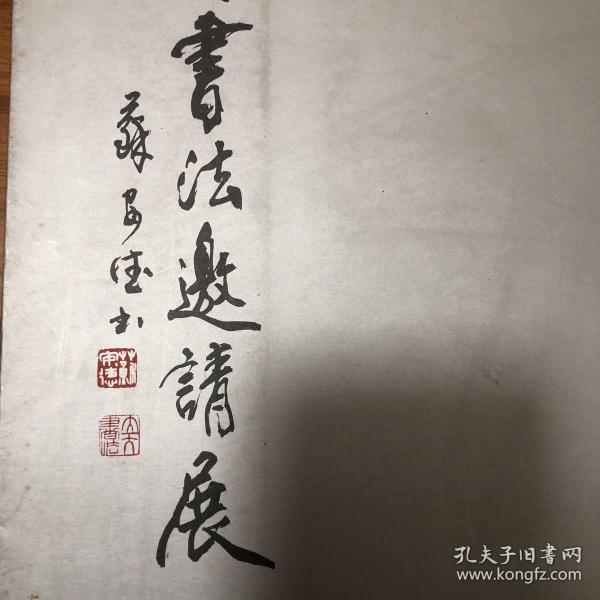 書法邀請展
蘇安德书
蘇安德
孔夫子旧书网
www.kongfz.com